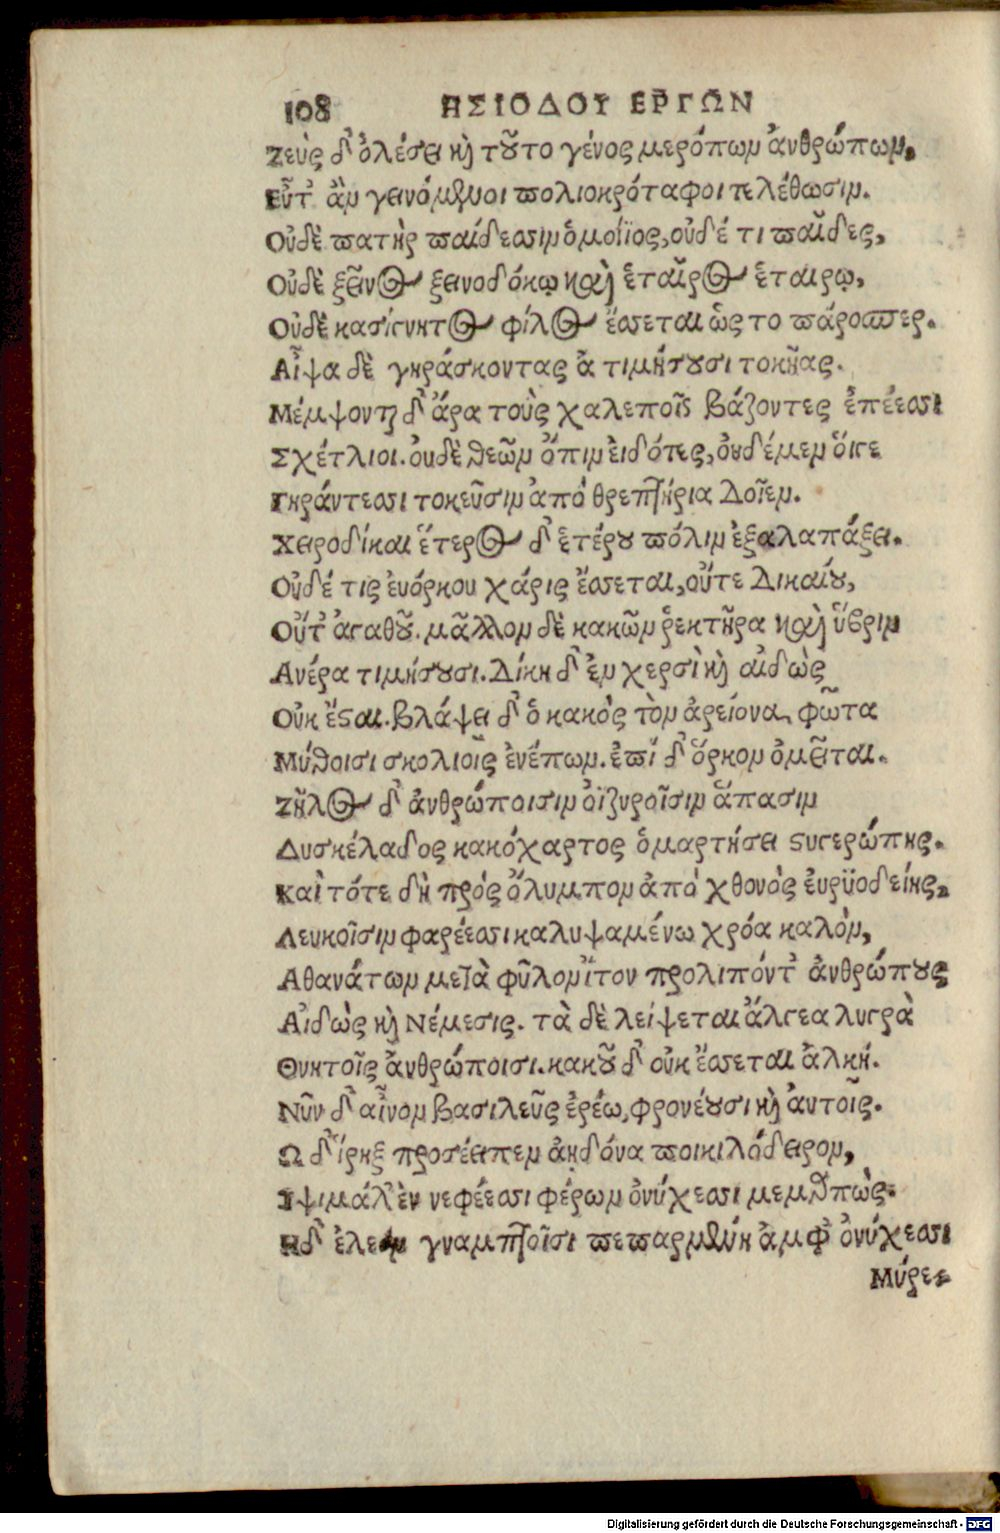 108 ΗΣΙΟΔΟΥ ΕΡΓΩΝ
Ζεὺς δ' ὀλέσει καὶ τοῦτο γένος μερόπων ἀνθρώπων,
Εὖτ' ἂν γεινόμενοι πολιοκρόταφοι τελέθωσιν.
Οὐδὲ πατὴρ παίδεσσιν ὁμοίϊος, οὐδέ τι παῖδες,
Οὐδὲ ξεῖνος ξεινοδόκῳ καὶ ἑταῖρος ἑταίρῳ,
Οὐδὲ κασίγνητος φίλος ἔσσεται ὡς το πάροσπερ.
Αἶψα δὲ γηράσκοντας ἀτιμήσουσι τοκῆας.
Μέμψονται δ' ἄρα τοὺς χαλεποῖς βάζοντες ἐπέεσσι
Σχέτλιοι. ουδὲ θεῶν ὄπιν εἰδότες, οὐδέ μεν οἵγε
Γηράντεσσι τοκεῦσιν ἀπὸ θρεπτήρια Δοῖεν.
Χειροδίκαι ἕτερος δ' ἑτέρου πόλιν ἐξαλαπάξει.
Οὐδέ τις ἐυόρκου χάρις ἔσσεται, οὔτε Δικαίου,
Οὔτ' ἀγαθοῦ. μᾶλλον δὲ κακῶν ῥεκτῆρα καὶ ὕβριν
Ανέρα τιμήσουσι. Δίκη δ' ἐν χερσὶ καὶ αἰδὼς
Οὐκ ἔσται. βλάψει δ' ὁ κακὸς τὸν ἀρείονα φῶτα
Μύθοισι σκολιοῖς ἐνέπων. ἐπί δ' ὅρκον ὀμεῖται.
Ζῆλος δ' ἀνθρώποισιν ὀϊζυροῖσιν ἅπασιν
Δυσκέλαδος κακόχαρτος ὁμαρτήσει στυγερώπης.
Καὶ τότε δὴ πρός ὄλυμπον ἀπὸ χθονὸς ἐυρϋοδείης,
Λευκοῖσιν φαρέεσσι καλυψαμένω χρόα καλὸν,
Αθανάτων μετὰ φῦλον ἴτον προλιπόντ' ἀνθρώπους
Αἰδὼς καὶ Νέμεσις. τὰ δὲ λείψεται ἄλγεα λυγρὰ
Θνητοῖς ἀνθρώποισι. κακοῦ δ' οὐκ ἔσσεται ἀλκή.
Νῦν δ' αἶνον βασιλεῦς ἐρέω, φρονέουσι καὶ ἀυτοῖς.
Ω δ' ἴρηξ προσέειπεν ἀηδόνα ποικιλόδειρον,
Ὕψι μάλ' ἐν νεφέεσσι φέρων ὀνύχεσσι μεμαρπὼς.
Η δ' ἐλεὸν γναμπτοῖσι πεπαρμένη ἀμφ' ὀνύχεσσι
Μύρε-
Digitalisierung gefördert durch die Deutsche Forschungsgemeinschaft - DFG